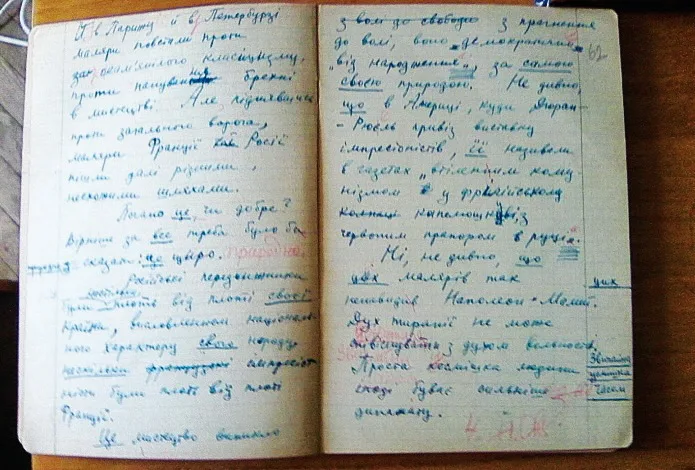 І в Парижі й в Петербурзі
маляри повстали проти
класицизму,
проти панування брехні
в мистецтві. Але піднявшись
проти загального ворога,
маляри Франції Росії
пішли далі різними,
несхожими шляхами.
Погано це, чи добре?
Вірніше за все треба було би
сказати: це щиро. природно.
Російські передвижники
були плоть від плоті своєї
країни, висловленням національ-
ного характеру свого народу
настільки французькі імпресіо
ністи були плоть від плоті
Франції.
Це мистецтво виникло
з волі до свободи з прагнення
до волі, воно „демократичне
від народження", за самою 62
своєю природою. Не дивно,
що в Америці, куди Дюран-
-Рюель привіз виставку
імпресіоністів, її називали
в газетах „втіленим кому
нізмом у фрігійському
капелюшкові з
червоним прапором в руці".
Ні, не дивно, що
цих малярів так цих
ненавидів Наполеон Малий.
Дух тиранії не може
з духом вольності.
Проста людини Звичайна
іноді буває сильніше часом
динамату.